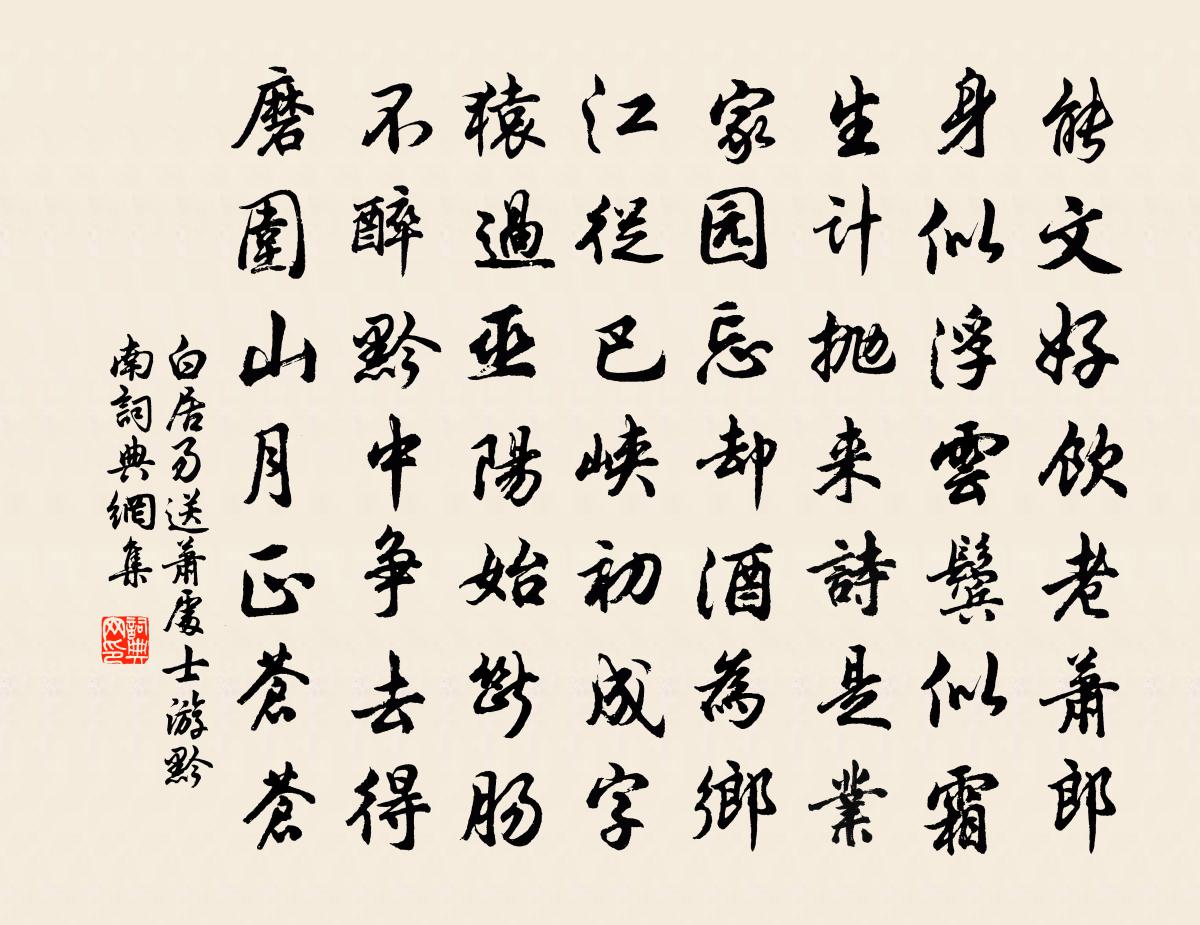 能文好飲老蕭郎
身似浮雲鬢似霜
生計抛来詩是業
家园忘却酒為鄉
江從巴峽初成字
猿過巫陽始斷肠
不醉黔中争去得
磨圍山月正蒼蒼
白居易送蕭處士游黔
南詞典網集
詞典
网印